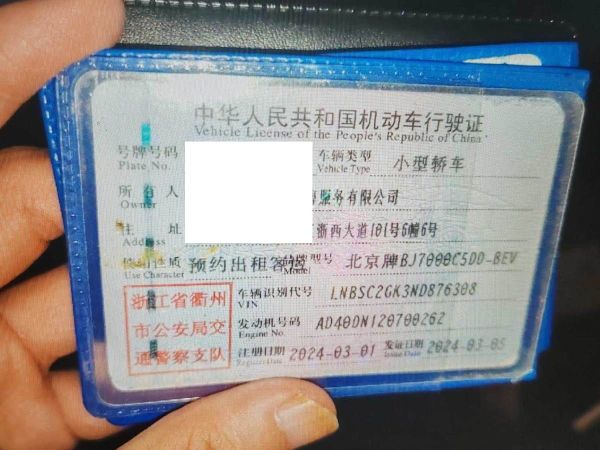 中华人民共和国机动车行驶证
Vehicle License of the People's Republic of China
号牌号码 车辆类型 小型轿车
Plate No. Vehicle Type
所有人 服务有限公司
Owner
住址 浙西大道101号6幢6号
Address
使用性质 预约出租客运 品牌型号 北京牌BJ7000C5DD-BEV
Use Character Model
浙江省衢州
市公安局交
通警察支队
车辆识别代号 LNBSC2GK3ND876308
VIN
发动机号码 AD40DN120700262
Engine No.
注册日期 2024-03-01 发证日期 2024-03-05
Register Date Issue Date